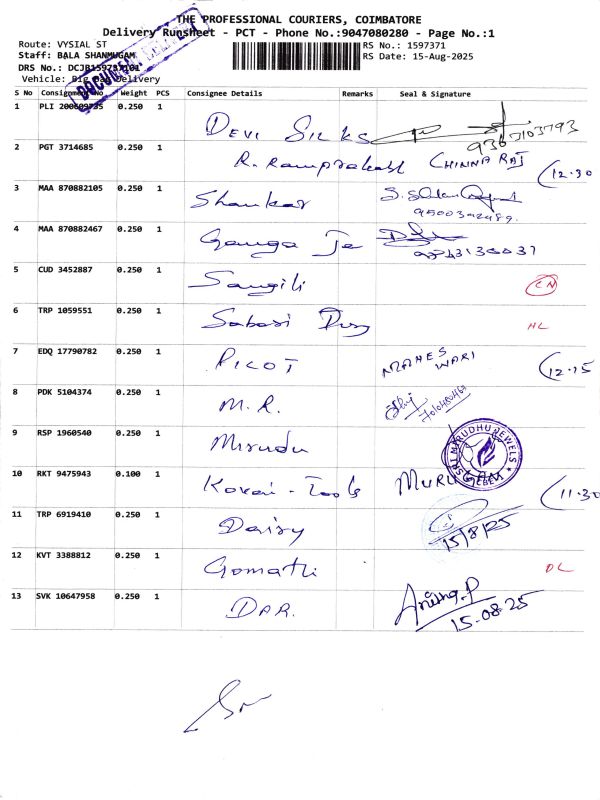 THE PROFESSIONAL COURIERS, COIMBATORE
Delivery Runsheet - PCT - Phone No.:9047080280 - Page No.:1
Route: VYSIAL ST
RS No.: 1597371
Staff: BALA SHANMUGAM
RS Date: 15-Aug-2025
DRS No.:
DOCUMENT
Vehicle: Big Bag Delivery
S No Consignment No Weight PCS Consignee Details Remarks Seal & Signature
1 PLI 0.250 1 DEVI SILKS 9367103793
2 PGT 3714685 0.250 1 R. Ramprakash CHINNARAJ (12.30
3 MAA 870882105 0.250 1 Shankar
4 MAA 870882467 0.250 1 Ganga Je
5 CUD 3452887 0.250 1 Sangili CN
6 TRP 1059551 0.250 1 Sabari NL
7 EDQ 17790782 0.250 1 PILOT MAHESWARI (12.15
8 PDK 5104374 0.250 1 M.R.
9 RSP 1960540 0.250 1 Mirudu
SRI MIRUDHU JEWELS
10 RKT 9475943 0.100 1 Kovai - Tools MURUGAN (11.30
11 TRP 6919410 0.250 1 Daisy 15/8/25
12 KVT 3388812 0.250 1 Gomathi DL
13 SVK 10647958 0.250 1 DAR. 15.08.25